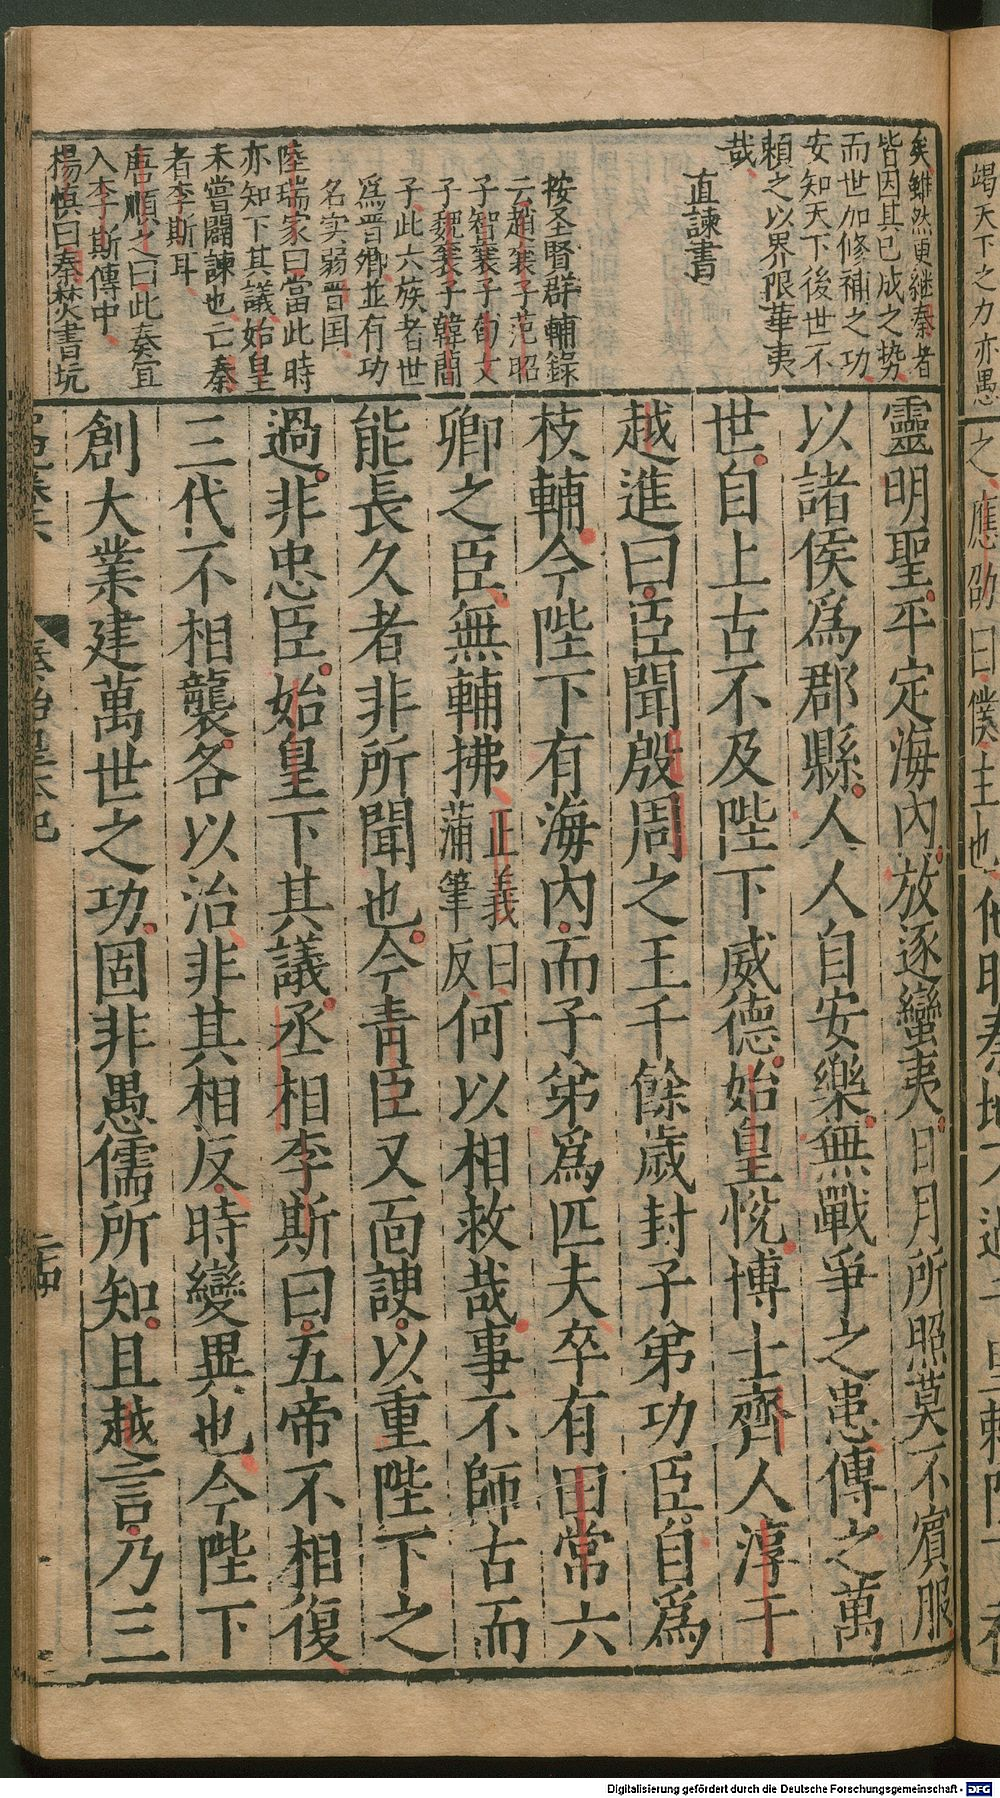 矣雖然更継秦者
皆因其已成之势
而世加修補之功
安知天下後世不
頼之以界限華夷
哉
直諫書
按圣賢群輔錄
云趙襄子范昭
子智襄子荀文
子魏襄子韓簡
子此六族者世
爲晋卿並有功
名实弱晋国
陸瑞家曰當此時
亦知下其議始皇
未嘗闢諫也亡秦
者李斯耳
唐順之曰此奏宜
入李斯傳中
楊慎曰秦焚書坑
靈明聖平定海內放逐蠻夷日月所照莫不賓服
以諸侯爲郡縣人人自安樂無戰爭之患傳之萬
世自上古不及陛下威德始皇悅博士齊人淳于
越進曰臣聞殷周之王千餘歲封子弟功臣自爲
枝輔今陛下有海內而子弟爲匹夫卒有田常六
卿之臣無輔拂正義曰蒲筆反何以相救哉事不師古而
能長久者非所聞也今青臣又面諛以重陛下之
過非忠臣始皇下其議丞相李斯曰五帝不相復
三代不相襲各以治非其相反時變異也今陛下
創大業建萬世之功固非愚儒所知且越言乃三
秦始皇本紀
竭天下之力亦愚
之應劭曰僕主也
Digitalisierung gefördert durch die Deutsche Forschungsgemeinschaft - DFG